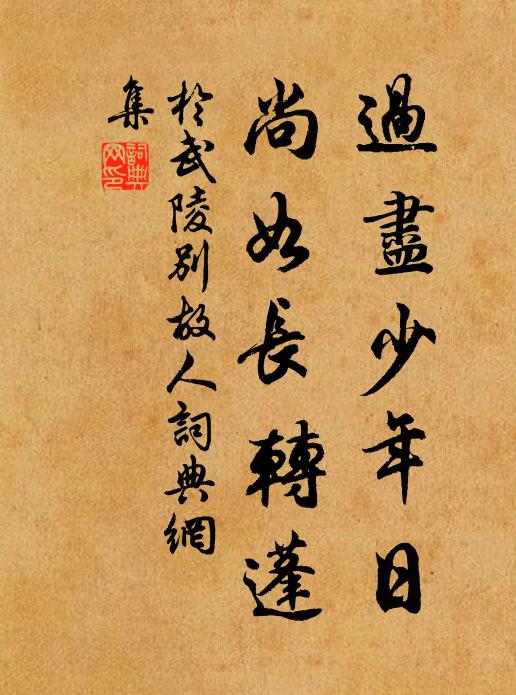 過盡少年日
尚如長轉蓬
於武陵別故人詞典網
集
詞典
网印